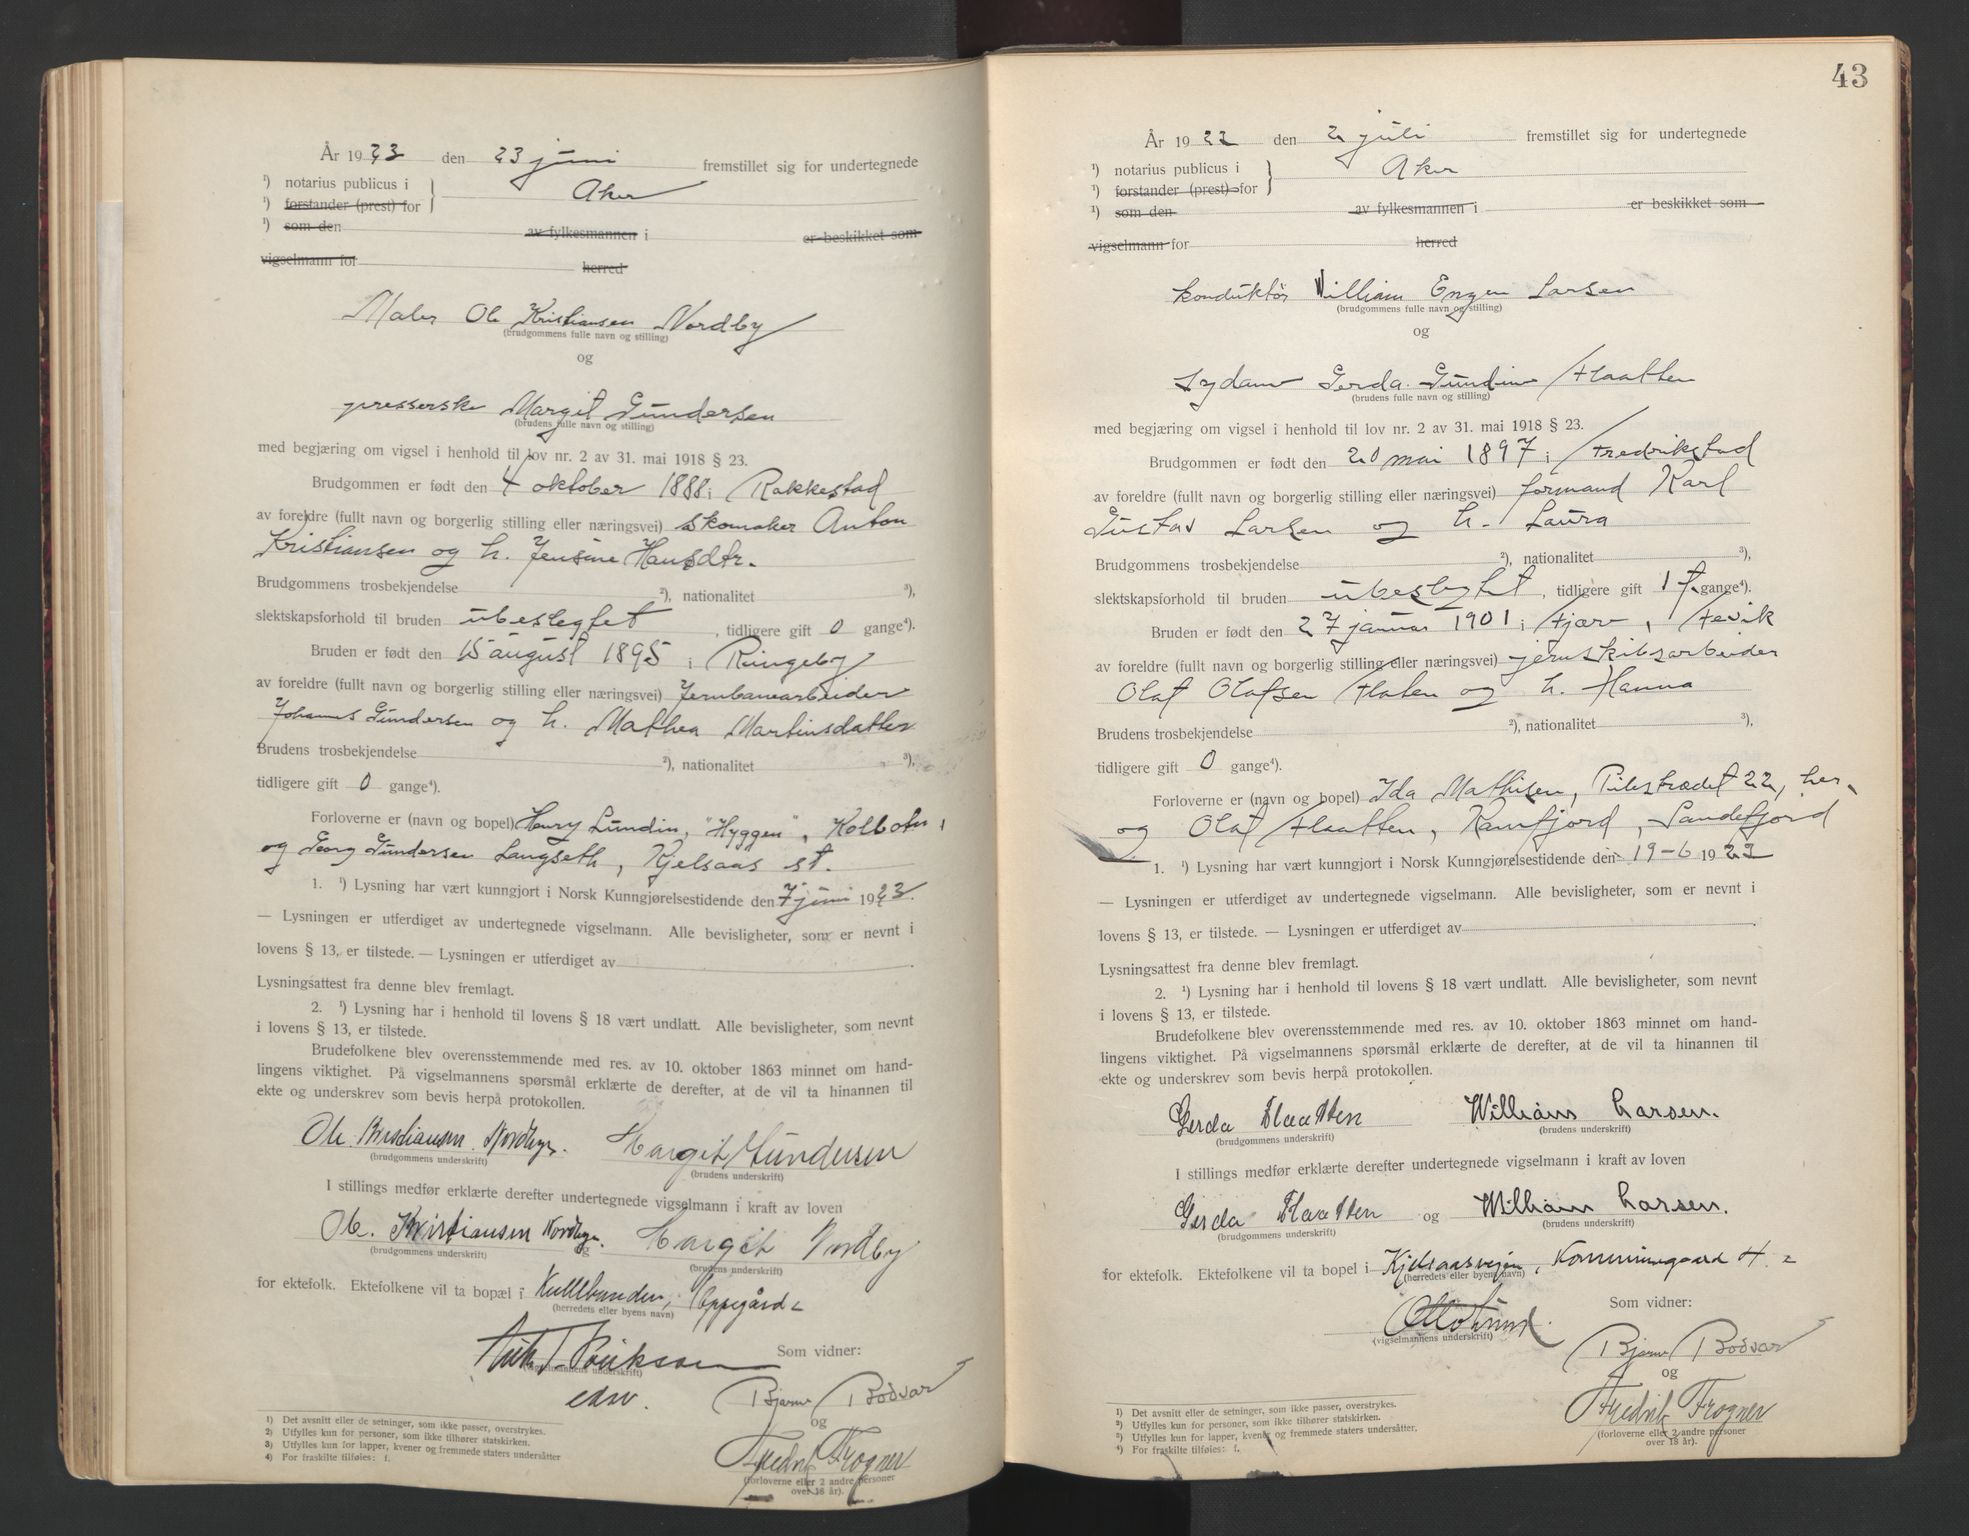 År 1923 den 23 juni fremstillet sig for undertegnede
¹) notarius publicus i
¹) forstander (prest) for } Aker
¹) som den av fylkesmannen i er beskikket som
vigselmann for herred
Maler Ole Kristiansen Nordby
(brudgommens fulle navn og stilling)
og
presserske Margit Gundersen
(brudens fulle navn og stilling)
med begjæring om vigsel i henhold til lov nr. 2 av 31. mai 1918 § 23.
Brudgommen er født den 4 oktober 1888 i Rakkestad
av foreldre (fullt navn og borgerlig stilling eller næringsvei) skomaker Anton
Kristiansen og h. Jensine Hansdtr.
Brudgommens trosbekjendelse ²), nationalitet ³),
slektskapsforhold til bruden ubeslegtet, tidligere gift 0 gange⁴).
Bruden er født den 15 august 1895 i Ringeby
av foreldre (fullt navn og borgerlig stilling eller næringsvei) Jernbanearbeider
Johannes Gundersen og h. Mathea Martinsdatter
Brudens trosbekjendelse ²), nationalitet ³),
tidligere gift 0 gange⁴).
Forloverne er (navn og bopel) Henry Lundin, "Hyggen", Kolbotn,
og Georg Gundersen Langseth, Kjelsaas st.
1. ¹) Lysning har vært kunngjort i Norsk Kunngjørelsestidende den 7 juni 1923.
— Lysningen er utferdiget av undertegnede vigselmann. Alle bevisligheter, som er nevnt i
lovens § 13, er tilstede. — Lysningen er utferdiget av .
Lysningsattest fra denne blev fremlagt.
2. ¹) Lysning har i henhold til lovens § 18 vært undlatt. Alle bevisligheter, som nevnt
i lovens § 13, er tilstede.
Brudefolkene blev overensstemmende med res. av 10. oktober 1863 minnet om hand-
lingens viktighet. På vigselmannens spørsmål erklærte de derefter, at de vil ta hinannen til
ekte og underskrev som bevis herpå protokollen.
Ole. Kristiansen. Nordbye. Margit Gundersen
(brudgommens underskrift) (brudens underskrift)
I stillings medfør erklærte derefter undertegnede vigselmann i kraft av loven
Ole. Kristiansen Nordbye. og Margit Nordby
(brudgommens underskrift) (brudens underskrift)
for ektefolk. Ektefolkene vil ta bopæl i Kullebunden, Oppegård
(herredets eller byens navn)
Som vidner:
(vigselmannens underskrift)
edsv. Bjarne Bodvar
og
Fredrik Frogner
(forloverne eller 2 andre personer
over 18 år).
¹) Det avsnitt eller de setninger, som ikke passer, overstrykes.
²) Utfylles kun for personer, som ikke tilhører statskirken.
³) Utfylles kun for lapper, kvener og fremmede staters undersåtter
⁴) For fraskilte tilføies: f.
43
År 1923 den 2 juli fremstillet sig for undertegnede
¹) notarius publicus i
¹) forstander (prest) for } Aker
¹) som den av fylkesmannen i er beskikket som
vigselmann for herred
konduktør William Engen Larsen
(brudgommens fulle navn og stilling)
og
sydame Gerda Gundine Flaatten
(brudens fulle navn og stilling)
med begjæring om vigsel i henhold til lov nr. 2 av 31. mai 1918 § 23.
Brudgommen er født den 20 mai 1897 i Fredrikstad
av foreldre (fullt navn og borgerlig stilling eller næringsvei) formand Karl
Gustav Larsen og h. Laura
Brudgommens trosbekjendelse ²), nationalitet ³),
slektskapsforhold til bruden ubeslegtet, tidligere gift 1 f. gange⁴).
Bruden er født den 27 januar 1901 i Fjære, Fevik
av foreldre (fullt navn og borgerlig stilling eller næringsvei) jernskibsarbeider
Olaf Olafsen Flaten og h. Hanna
Brudens trosbekjendelse ²), nationalitet ³),
tidligere gift 0 gange⁴).
Forloverne er (navn og bopel) Ida Mathisen, Pilestrædet 22, her
og Olaf Flaatten, Sandefjord
1. ¹) Lysning har vært kunngjort i Norsk Kunngjørelsestidende den 19-6 1923
— Lysningen er utferdiget av undertegnede vigselmann. Alle bevisligheter, som er nevnt i
lovens § 13, er tilstede. — Lysningen er utferdiget av .
Lysningsattest fra denne blev fremlagt.
2. ¹) Lysning har i henhold til lovens § 18 vært undlatt. Alle bevisligheter, som nevnt
i lovens § 13, er tilstede.
Brudefolkene blev overensstemmende med res. av 10. oktober 1863 minnet om hand-
lingens viktighet. På vigselmannens spørsmål erklærte de derefter, at de vil ta hinannen til
ekte og underskrev som bevis herpå protokollen.
Gerda Flaatten William Larsen.
(brudgommens underskrift) (brudens underskrift)
I stillings medfør erklærte derefter undertegnede vigselmann i kraft av loven
Gerda Flaatten og William Larsen.
(brudgommens underskrift) (brudens underskrift)
for ektefolk. Ektefolkene vil ta bopel i Kjelsaasveien, Kommunegaard 4.
(herredets eller byens navn)
Som vidner:
(vigselmannens underskrift)
Bjarne Bodvar
og
Fredrik Frogner
(forloverne eller 2 andre personer
over 18 år).
¹) Det avsnitt eller de setninger, som ikke passer, overstrykes.
²) Utfylles kun for personer, som ikke tilhører statskirken.
³) Utfylles kun for lapper, kvener og fremmede staters undersåtter.
⁴) For fraskilte tilføies: f.